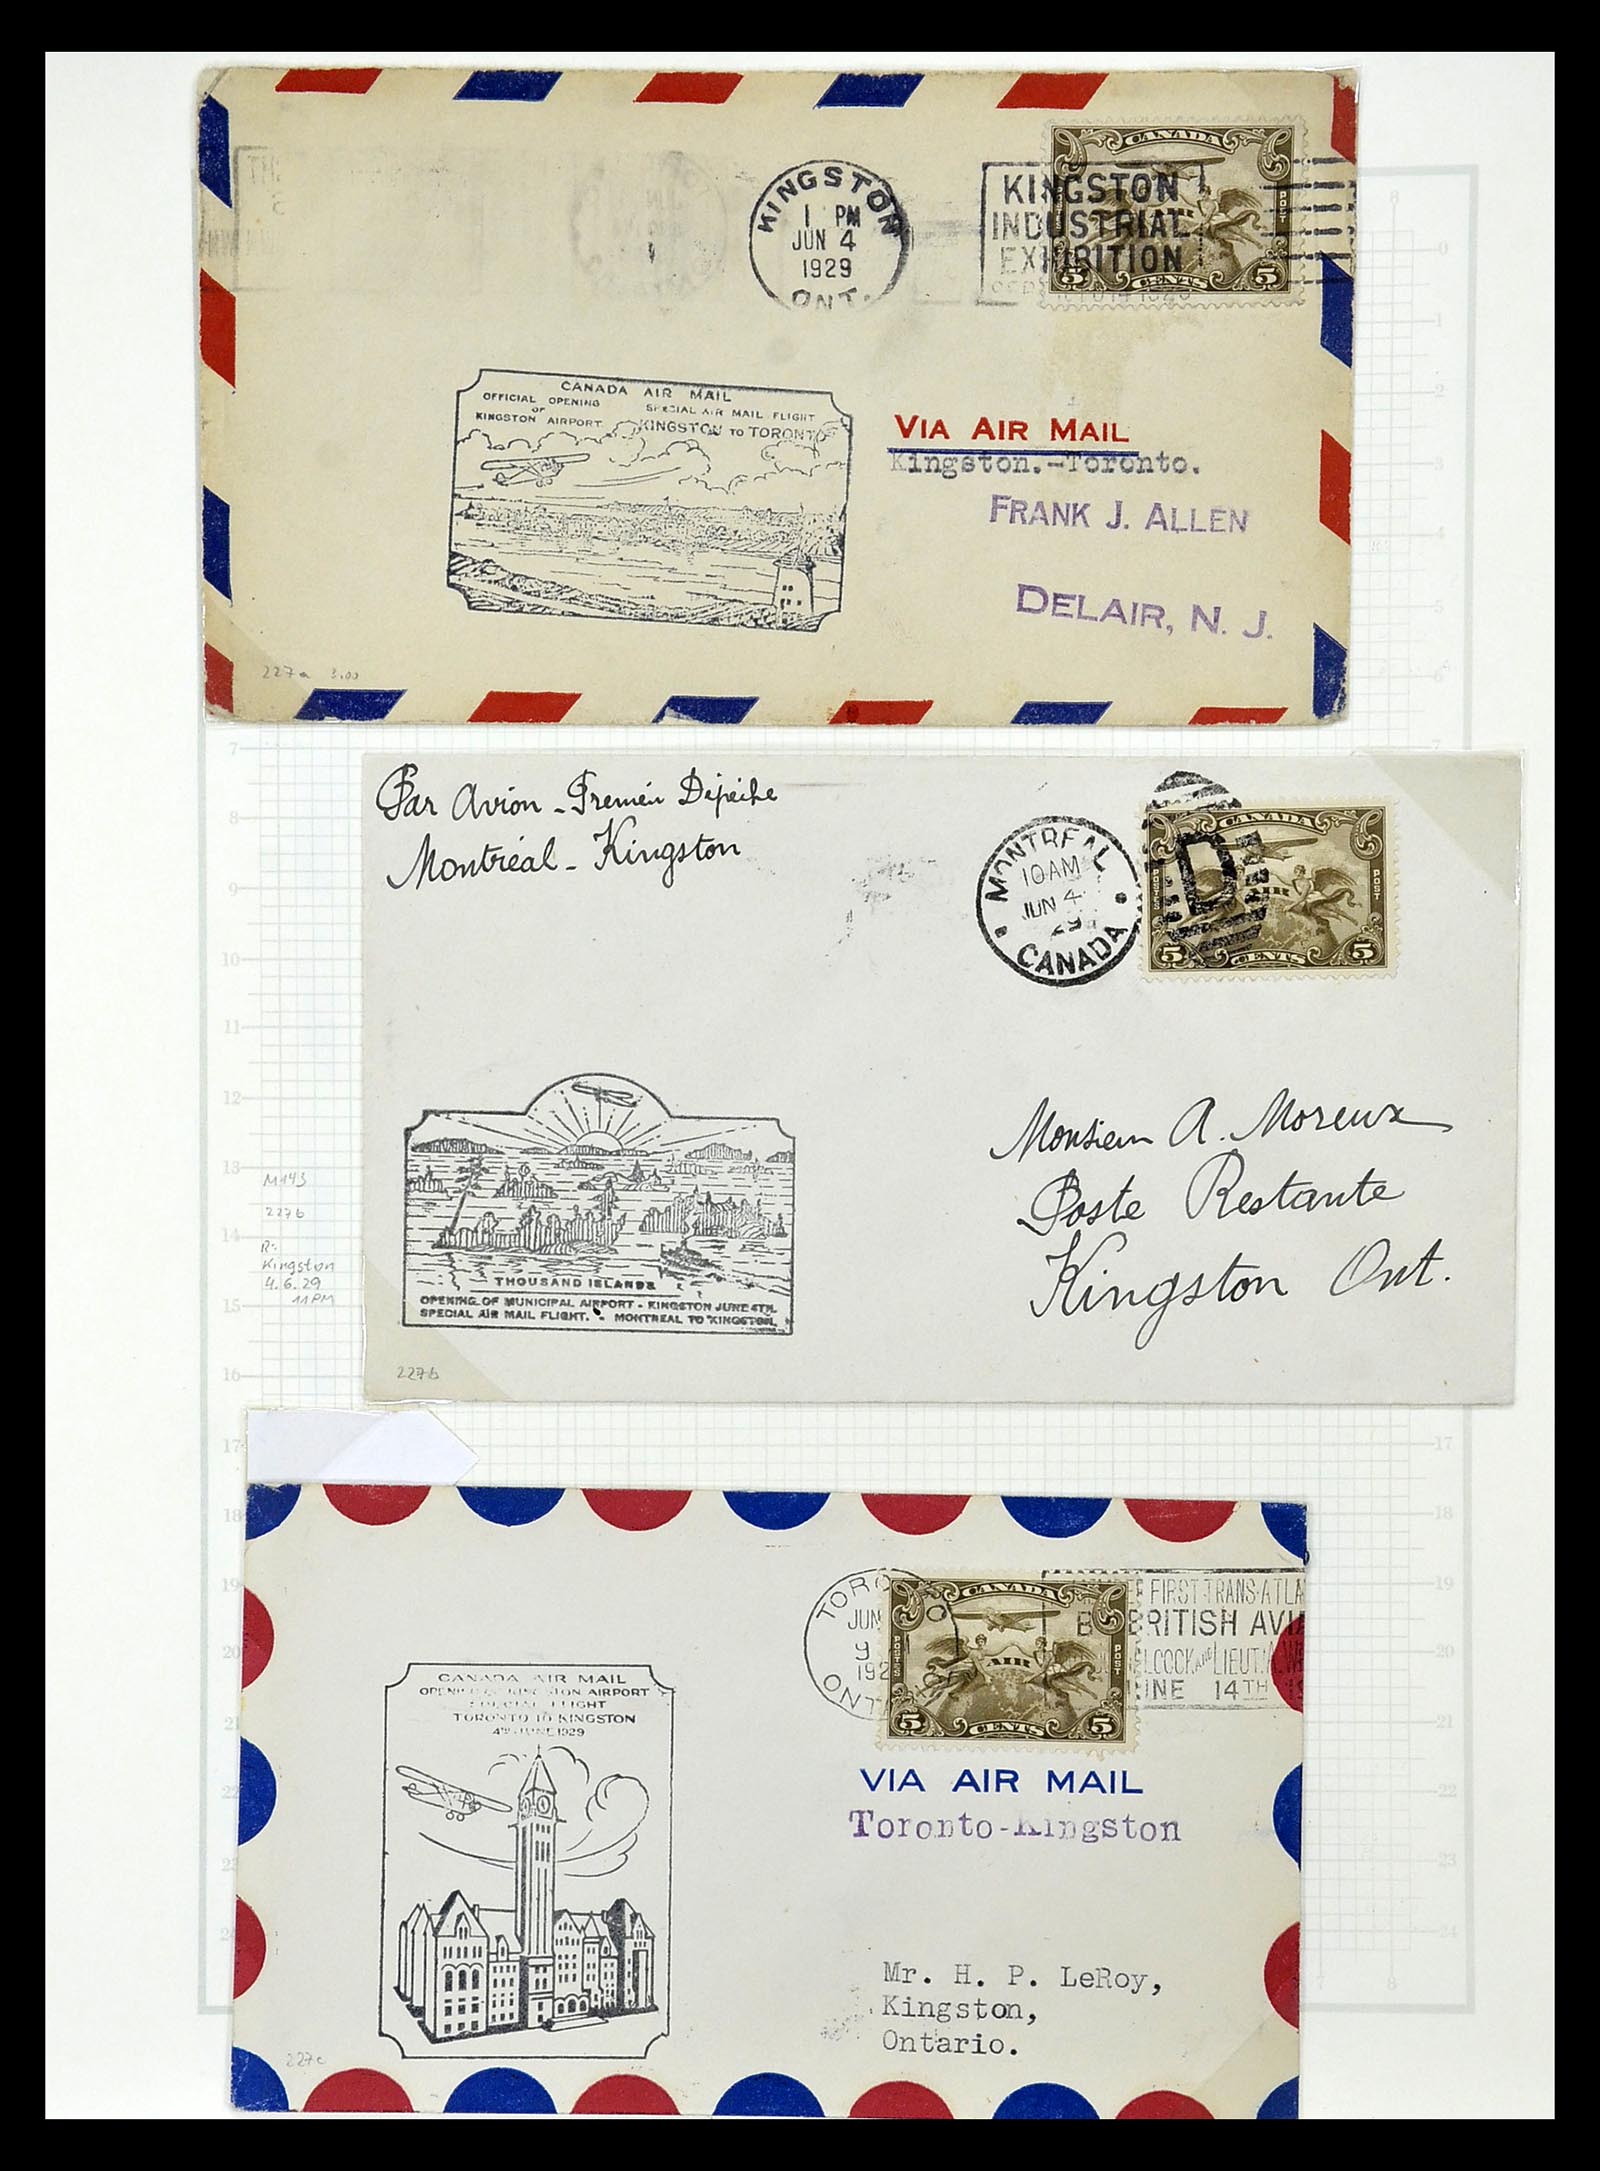 CANADA
POST
AIR
5 CENTS 5
KINGSTON
1 PM
JUN 4
1929
ONT.
KINGSTON
INDUSTRIAL
EXHIBITION
CANADA AIR MAIL
OFFICIAL OPENING
OF
KINGSTON AIRPORT
SPECIAL AIR MAIL FLIGHT
KINGSTON TO TORONTO
VIA AIR MAIL
Kingston.-Toronto.
FRANK J. ALLEN
DELAIR, N. J.
227a 3.00
Par Avion - Premier Dépêche
Montréal - Kingston
MONTREAL
10 AM
JUN 4
29
CANADA
CANADA
POSTES AIR POST
D
5 CENTS 5
Monsieur A. Moreux
Poste Restante
Kingston Ont.
THOUSAND ISLANDS
OPENING OF MUNICIPAL AIRPORT - KINGSTON JUNE 4TH.
SPECIAL AIR MAIL FLIGHT. - MONTREAL TO KINGSTON.
227b
M143
227b
R:
Kingston
4.6.29
11PM
7
8
9
10
11
12
13
14
15
16
17
18
19
20
21
22
23
24
8
0
1
2
3
4
5
6
7
17
18
19
20
21
22
23
24
7 8
TORO O
JUN
9
192
ONT
CANADA
POSTES AIR POST
5 CENTS 5
FIRST TRANS-ATLA
BRITISH AVIA
LCOCK AND LIEUT. A. W
JUNE 14TH 19
CANADA AIR MAIL
OPENING OF KINGSTON AIRPORT
SPECIAL FLIGHT
TORONTO TO KINGSTON
4TH JUNE 1929
VIA AIR MAIL
Toronto-Kingston
Mr. H. P. LeRoy,
Kingston,
Ontario.
227c